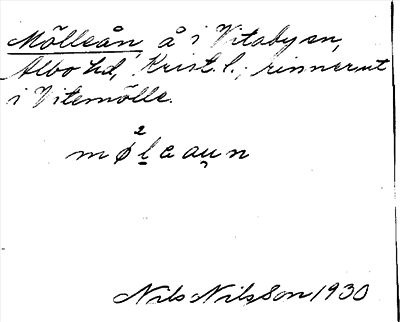 Mölleån, å i Vitaby sn,
Albo hd, Krist. l.; rinner ut
i Vitemölle.
2
mølaau̯n
Nils Nilsson 1930